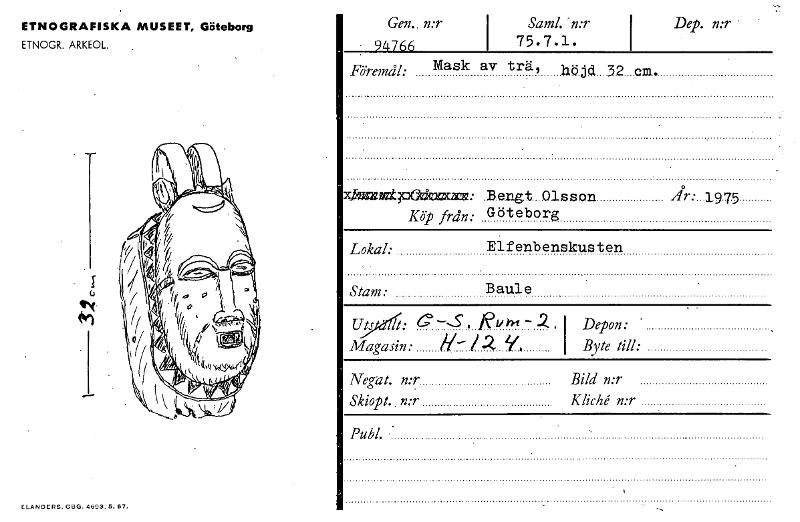 ETNOGRAFISKA MUSEET, Göteborg
ETNOGR. ARKEOL.
32 cm
ELANDERS. GBG. 4693. 5. 67.
Gen. n:r Saml. n:r Dep. n:r
94766 75.7.1.
Föremål: Mask av trä, höjd 32 cm.
Bengt Olsson År: 1975
Köp från: Göteborg
Lokal: Elfenbenskusten
Stam: Baule
Utställt: G-S. Rum-2. Depon:
Magasin: H-124. Byte till:
Negat. n:r Bild n:r
Skiopt. n:r Kliché n:r
Publ.